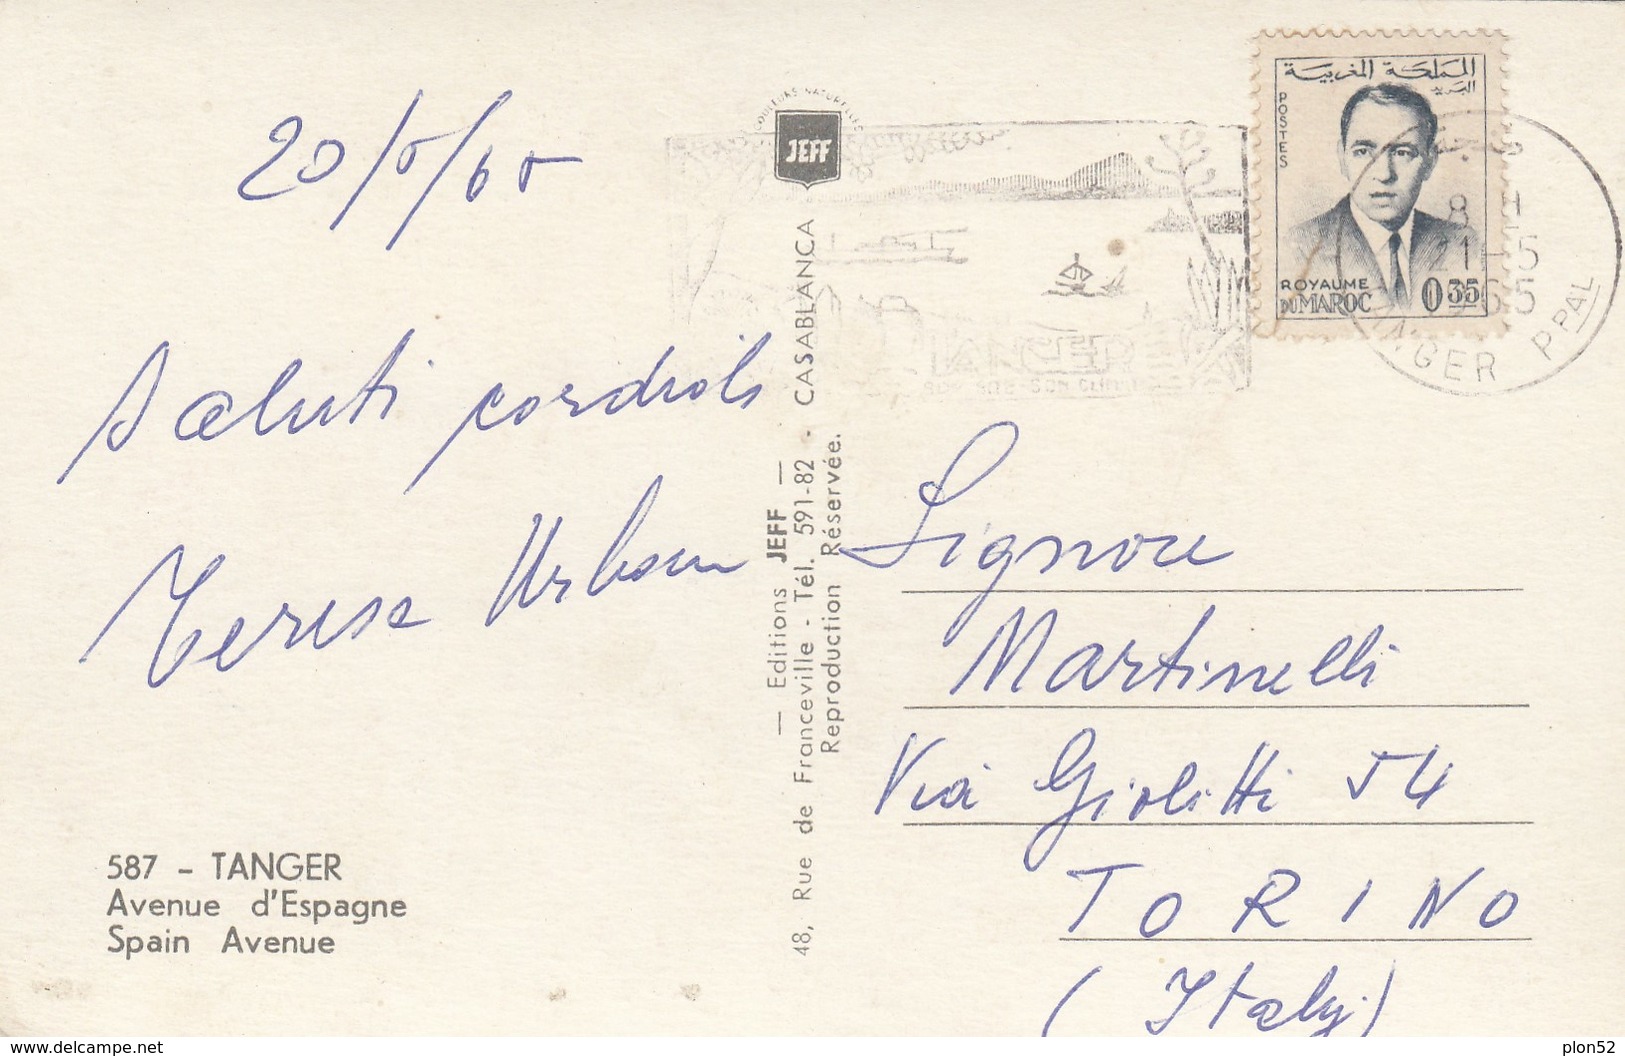 20/5/65
Saluti cordiali
Teresa Urban
587 - TANGER
Avenue d'Espagne
Spain Avenue
COULEURS NATURELLES
JEFF
— Editions JEFF —
48, Rue de Franceville - Tél. 591-82 - CASABLANCA
Reproduction Réservée.
TANGER
SON CLIMAT
المملكة المغربية
البريد
POSTES
ROYAUME
DU MAROC
0.35
طنجة
8 H
21-5
1965
TANGER PPAL
Signore
Martinelli
Via Giolitti 54
TORINO
(Italy)
www.delcampe.net
plon52